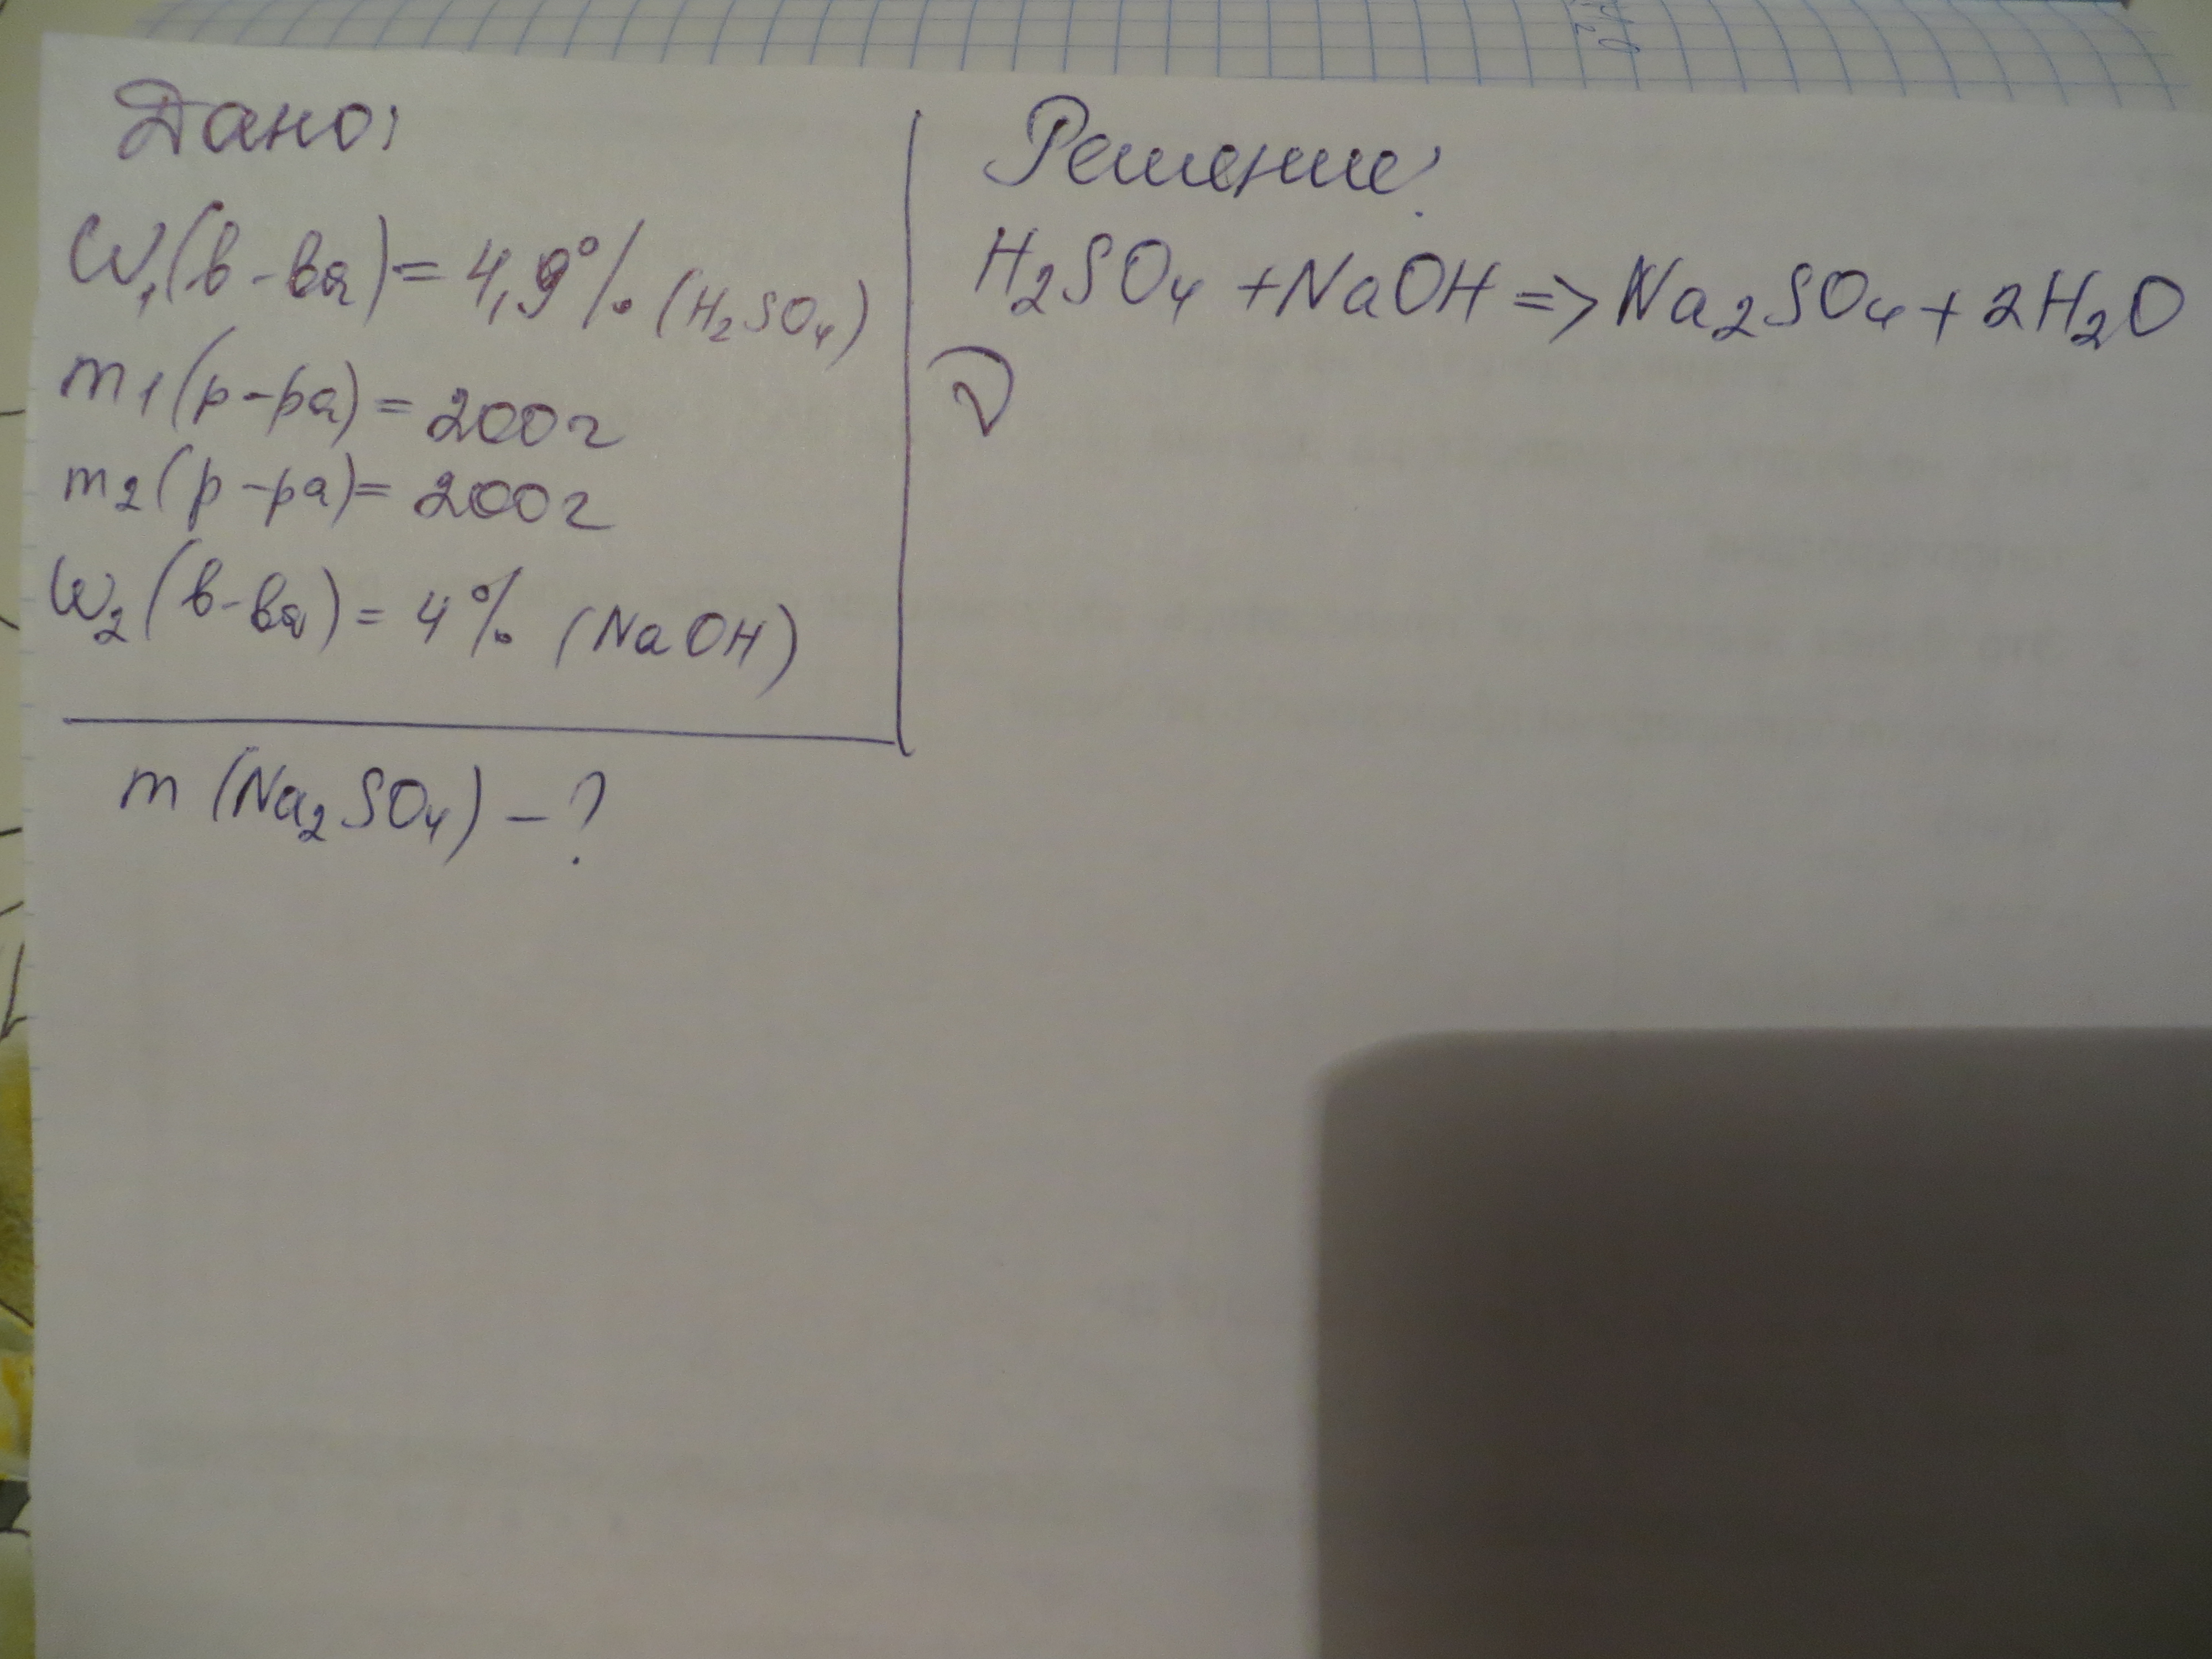 Дано:
W₁(в-ва) = 4,9% (H₂SO₄)
m1(р-ра) = 200г
m2(р-ра) = 200г
W₂(в-ва) = 4% (NaOH)
m (Na₂SO₄) - ?
Решение:
H₂SO₄ + NaOH => Na₂SO₄ + 2H₂O